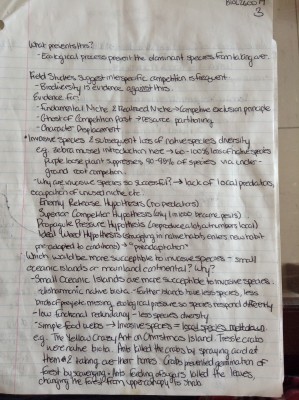 BIOL2600M
3
What prevents this?
- Ecological process prevent the dominant species from taking over.
Field Studies suggest interspecific competition is frequent
- Biodiversity is evidence against this.
Evidence for:
- Fundamental Niche & Realized Niche → Competitive exclusion principle
- Ghost of Competition Past → resource partitioning
- Character Displacement
* Invasive Species & subsequent loss of native species diversity
e.g. zebra mussel introduction here → 60-100% loss of native species
purple loose plant suppresses 90-98% of species via under-
ground root competition
- Why are invasive species so successful? → lack of local predators,
occupation of unused niche, etc.
Enemy Release Hypothesis (no predators)
Superior Competitor Hypothesis (only 1 in 1000 become pests)
Propagule Pressure Hypothesis (reproduce a lot, outnumbers local)
Ideal Weed Hypothesis (struggling in native habitat, enters new habitat
pre-adapted to conditions) → "preadaptation"
Which would be more susceptible to invasive species - small
oceanic islands or mainland continental? Why?
- Small Oceanic Islands are more susceptible to invasive species
- disharmonic native biota - Further islands have less species, less
kinds of projects missing, ecological pressure so species respond differently
- low functional redundancy - less species diversity
- simple food webs → Invasive species = local species meltdown
e.g. The Yellow Crazy Ant on Christmas Island. These crabs
were native biota. Ants killed the crabs by spraying acid at
them & taking over their homes. Crabs prevented germination of
forest by scavenging. Ants feeding off sugars killed the trees,
changing the forest from upper canopy to shrub